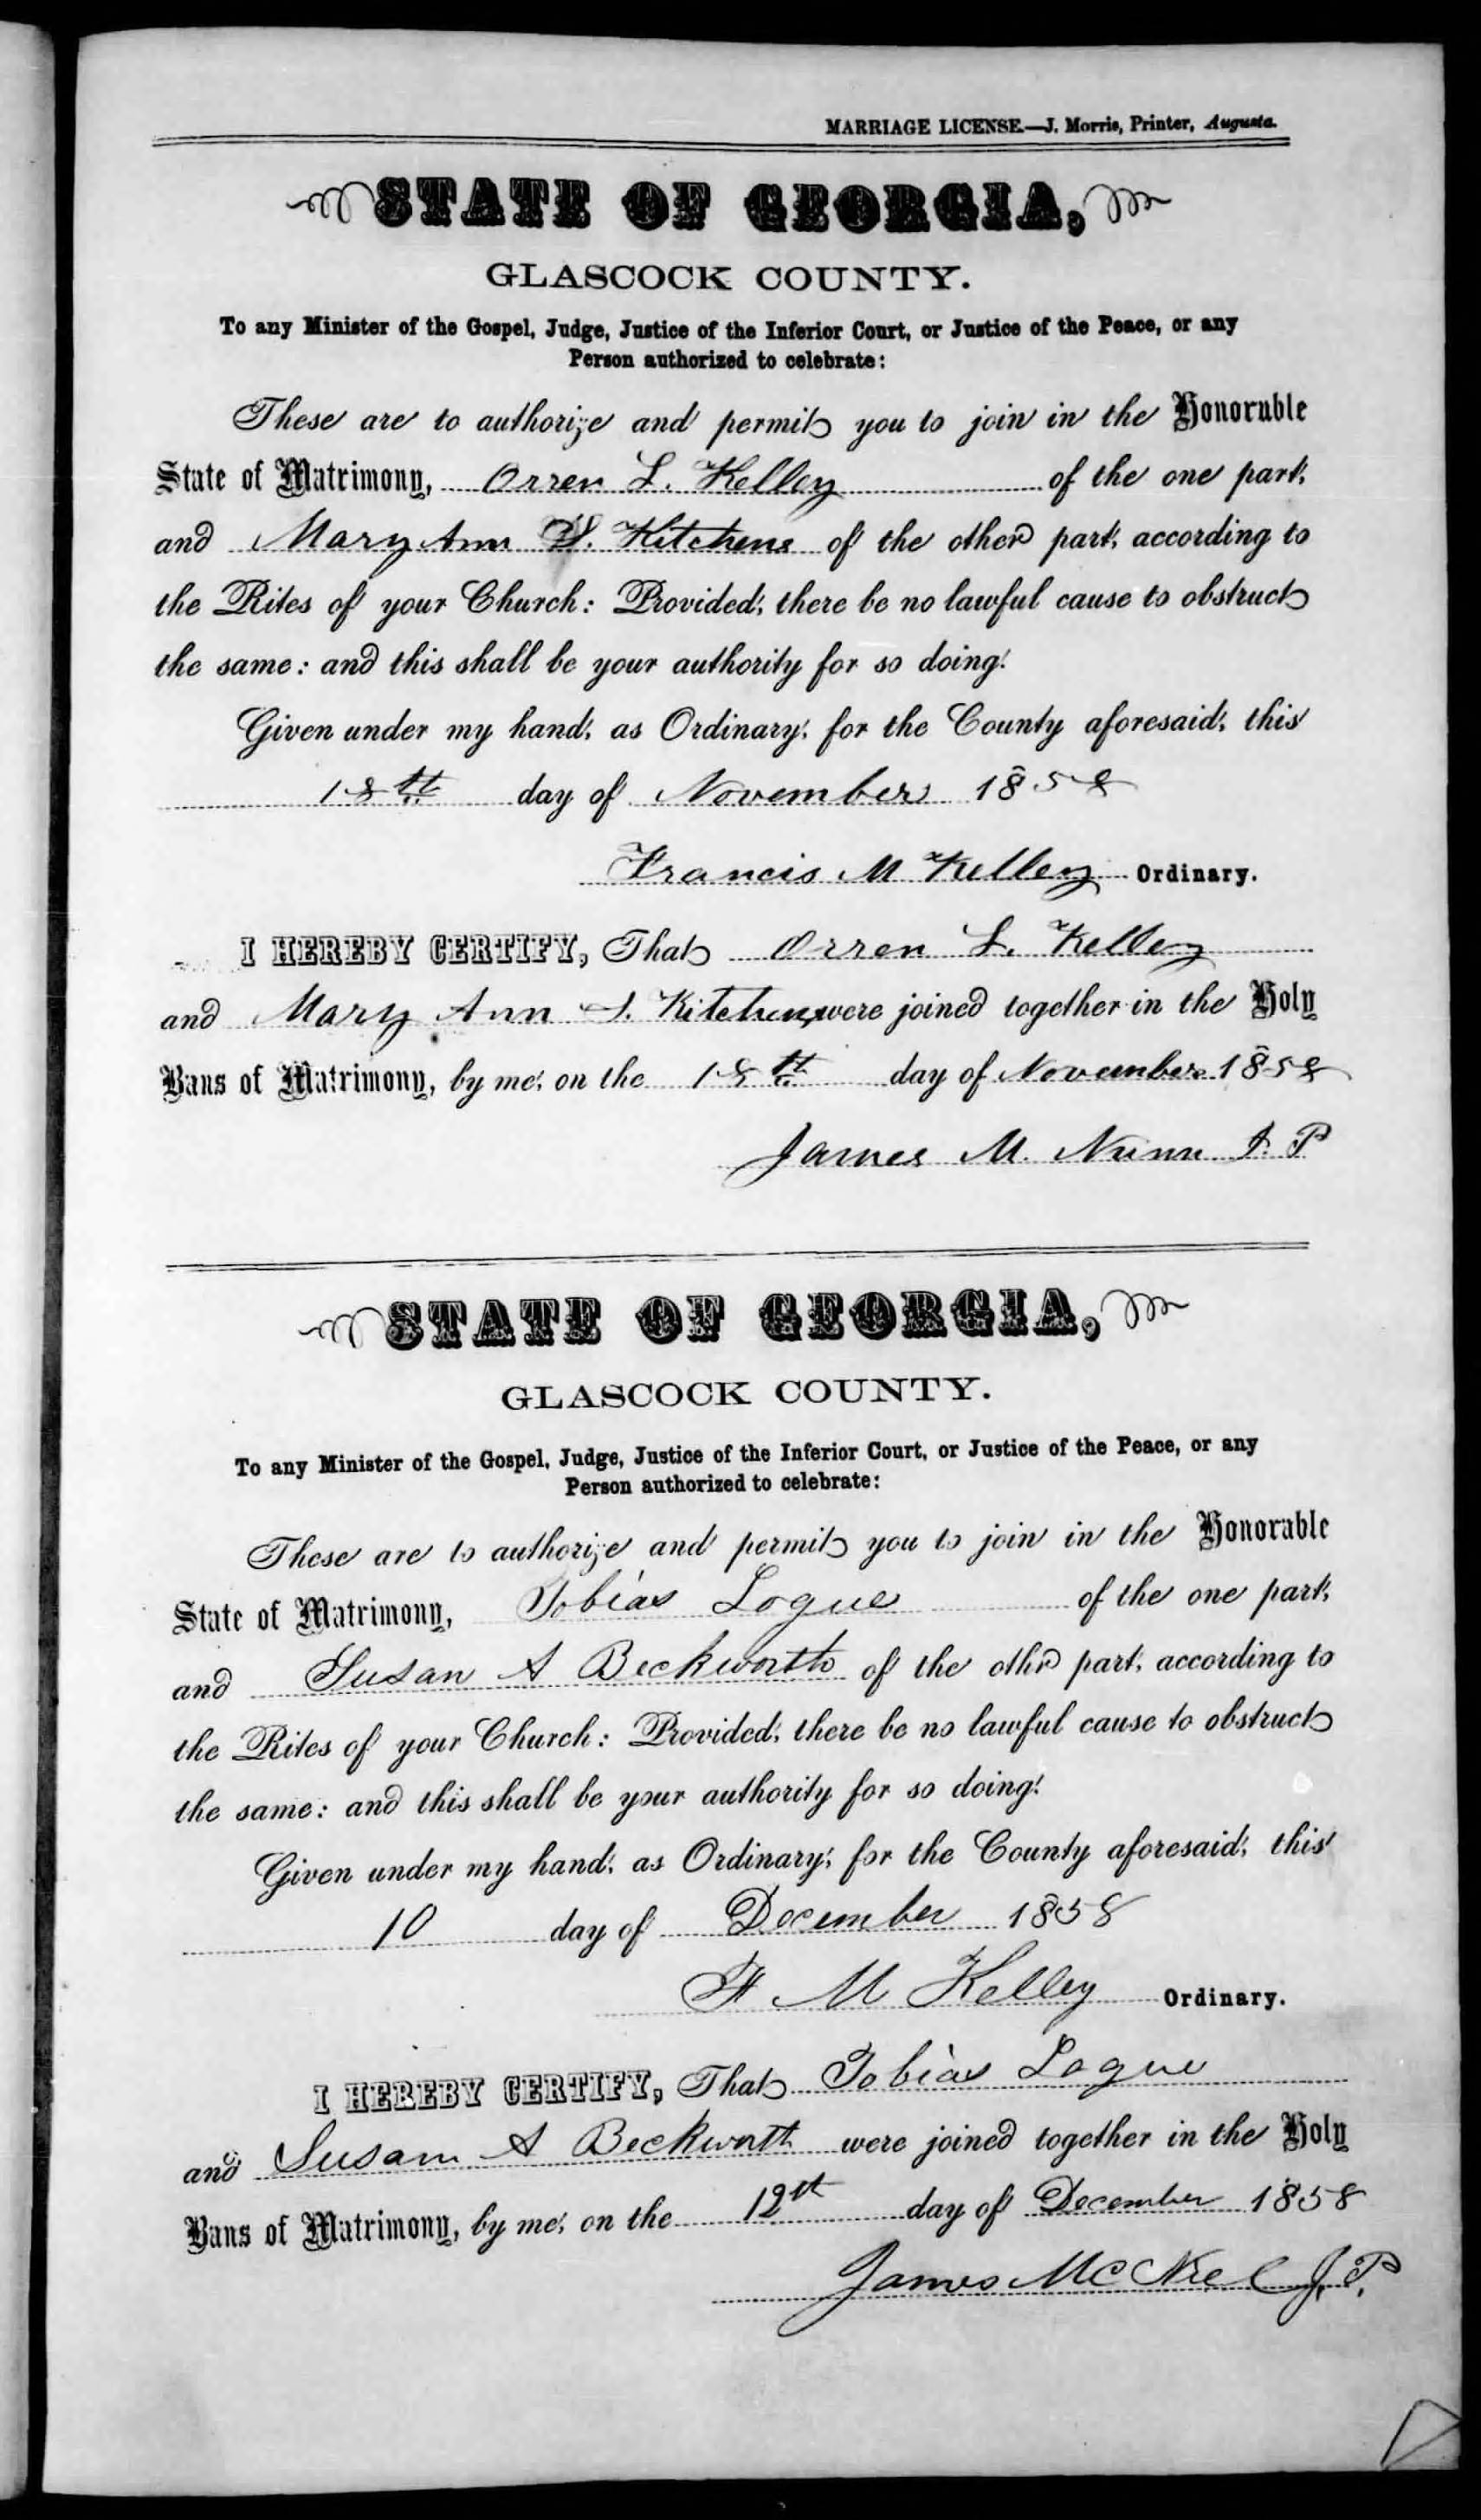 MARRIAGE LICENSE.—J. Morris, Printer, Augusta.
STATE OF GEORGIA,
GLASCOCK COUNTY.
To any Minister of the Gospel, Judge, Justice of the Inferior Court, or Justice of the Peace, or any
Person authorized to celebrate:
These are to authorize and permit you to join in the Honorable
State of Matrimony, Orren L. Kelley of the one part,
and Mary Ann S. Kitchens of the other part, according to
the Rites of your Church: Provided, there be no lawful cause to obstruct
the same: and this shall be your authority for so doing.
Given under my hand, as Ordinary, for the County aforesaid, this
18th day of November 1858
Francis M Kelley Ordinary.
I HEREBY CERTIFY, That Orren L. Kelley
and Mary Ann S. Kitchens were joined together in the Holy
Bans of Matrimony, by me, on the 18th day of November 1858
James M. Nunn J. P
STATE OF GEORGIA,
GLASCOCK COUNTY.
To any Minister of the Gospel, Judge, Justice of the Inferior Court, or Justice of the Peace, or any
Person authorized to celebrate:
These are to authorize and permit you to join in the Honorable
State of Matrimony, Tobias Logue of the one part,
and Susan A Beckworth of the othr part, according to
the Rites of your Church: Provided, there be no lawful cause to obstruct
the same: and this shall be your authority for so doing.
Given under my hand, as Ordinary, for the County aforesaid, this
10 day of December 1858
F M Kelley Ordinary.
I HEREBY CERTIFY, That Tobias Logue
and Susan A Beckworth were joined together in the Holy
Bans of Matrimony, by me, on the 12th day of December 1858
James McNiel J. P.